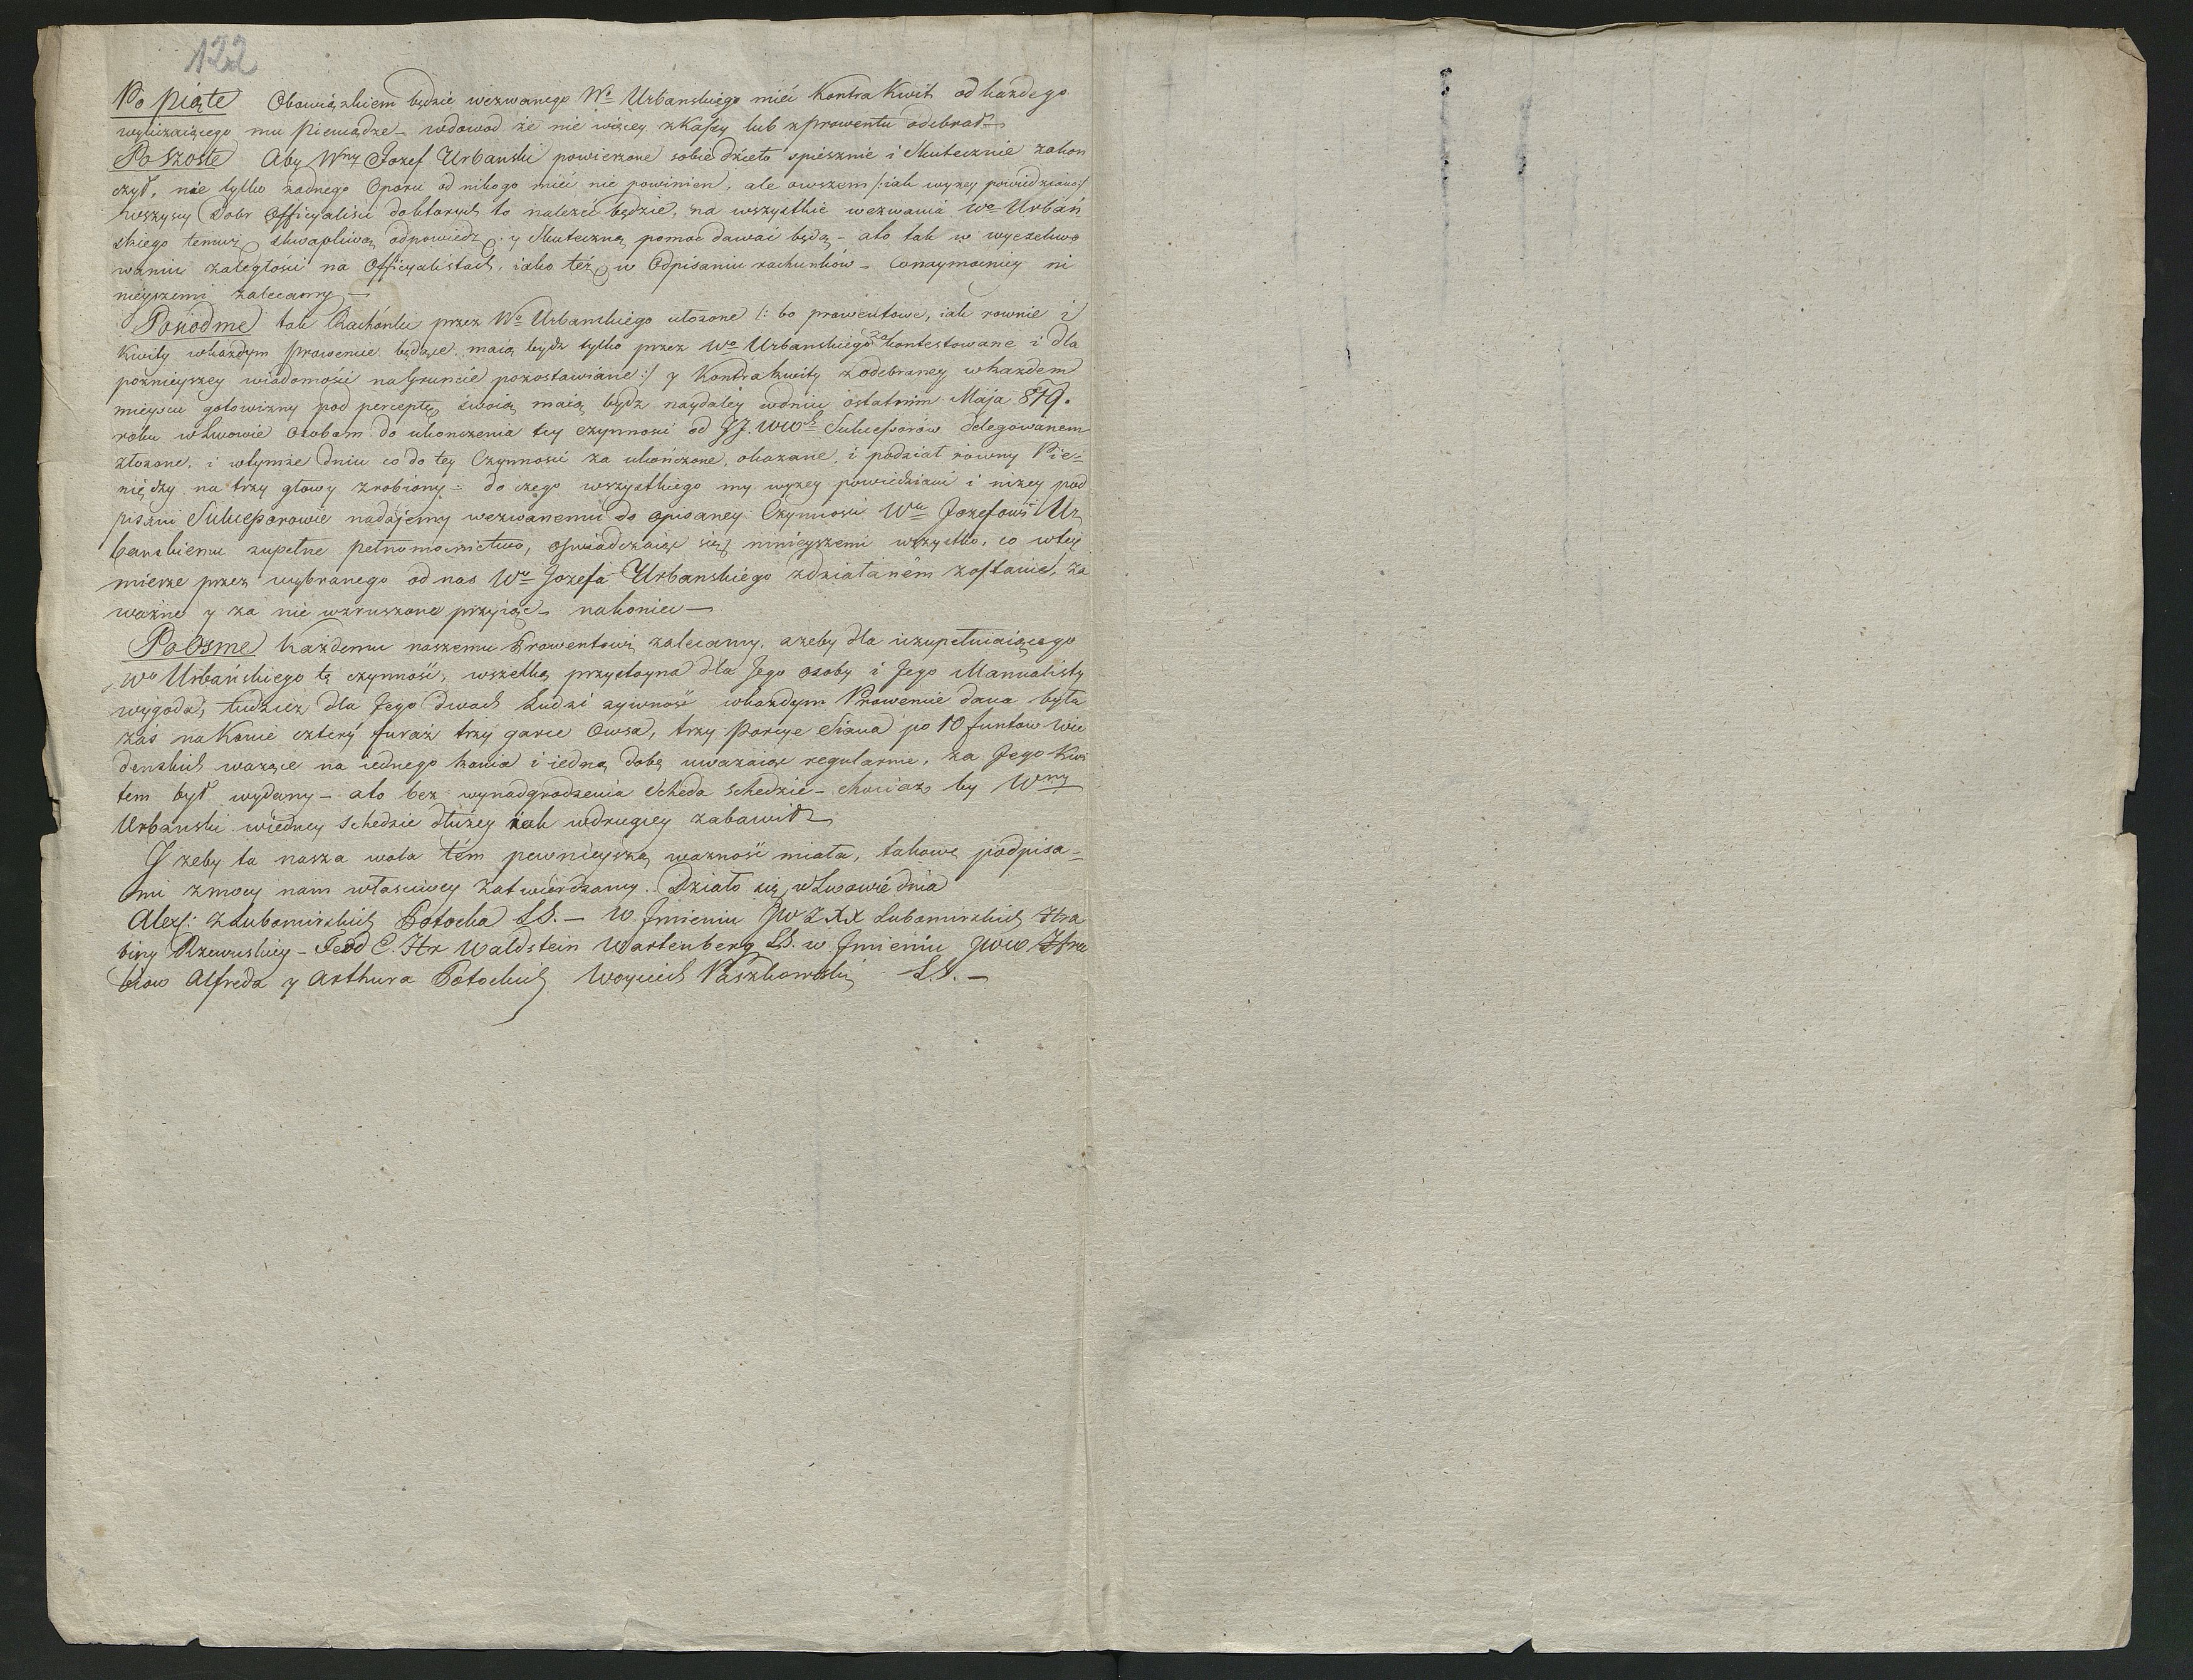 122
Po piąte Obowiązkiem będzie wezwanego Wo Urbanskiego mieć Kontra Kwit od każdego
wyliczaiącego mu pieniądze – wdowod że nie więcey zKassy lub zprowentu odebrał –
Poszoste Aby Wny Jozef Urbanski powierzone sobie dzieło spiesznie i skutecznie zakon
czył, nie tylko żadnego Oporu od nikogo mieć nie powinien, ale owszem /: iak wyzey powiedziano :/
wszyscy Dobr Officyalisci doktorych to należeć będzie, na wszystkie wezwania Wo Urbań
skiego temuż skwapliwą odpowiedz, y skuteczną pomoc dawać będą – ato tak w wyczekwo
waniu zaległości na Officyalistach, iako też w Odpisaniu rachunków – conaymocniey ni
nieyszemi zalecamy –
Posiodme tak Rachonki przez Wo Urbanskiego ułozone /: bo prowentowe, iak rownie i
Kwity wkażdym prowencie będące maią bydz tylko przez Wo Urbanskiego zakontestowane i dla
poznieyszey wiadomości naGruncie pozostawiane :/ y Kontrakwity zodebraney wkażdem
mieyscu gotowizny pod perceptę swoią maią bydz naydaley wdniu ostatnim Maja 819.
roku wLwowie Osobom do ukonczenia tey czynnosci od JJ. WWch Sukcessorów delegowanem
złozone, i wtymże dniu co do tey Czynnosci za ukończone, okazane, i podział rowny Pie=
niędzy na trzy głowy zrobiony = do czego wszystkiego my wyzey powiedziani i nizey pod
pisani Sukcessorowie nadajemy wezwanemu do opisaney Czynnosci Wu Jozefowi Ur
banskiemu zupełne pełnomocnictwo, oswiadczaiąc się ninieyszemi wszystko, co wtey
mierze przez wybranego od nas Wo Jozefa Urbanskiego zdziałanem zostanie, za
ważne y za nie wzruszone przyiąć – nakoniec –
Po Osme Każdemu naszemu Prowentowi zalecamy, azeby dla uzupełniaiącego
Wo Urbańskiego tę czynność, wszelka przystoyna dla Jego osoby i Jego Manualisty
wygoda, tudzież dla Jego dwoch Ludzi zywność wkażdym Prowencie dana była
zaś na Konie cztery furaż trzy garce Owsa, trzy porcye Siana po 10 funtow Wie
denskich ważące na iednego konia i iedną dobę uwazaiąc regularnie, za Jego Kwi
tem był wydany – ato bez wynadgrodzenia Scheda schedzie – chociaz by Wny
Urbanski wiedney Schedzie dłużey iak wdrugiey zabawił –
Y zeby ta nasza wola tém pewnieyszą wazność miała, takową podpisa=
mi zmocy nam własciwey zatwierdzamy. Działo się wLwowie dnia
Alex: zLubomirskich Potocka LS. – W Jmieniu JW z XX Lubomirskich Hra
biny Rzewuskiey – Ferd C. Hr Waldstein Wartenberg LS. w Jmieniu JWW Hra
biow Alfreda y Arthura Potockich Woyciech Paszkowski LS. –